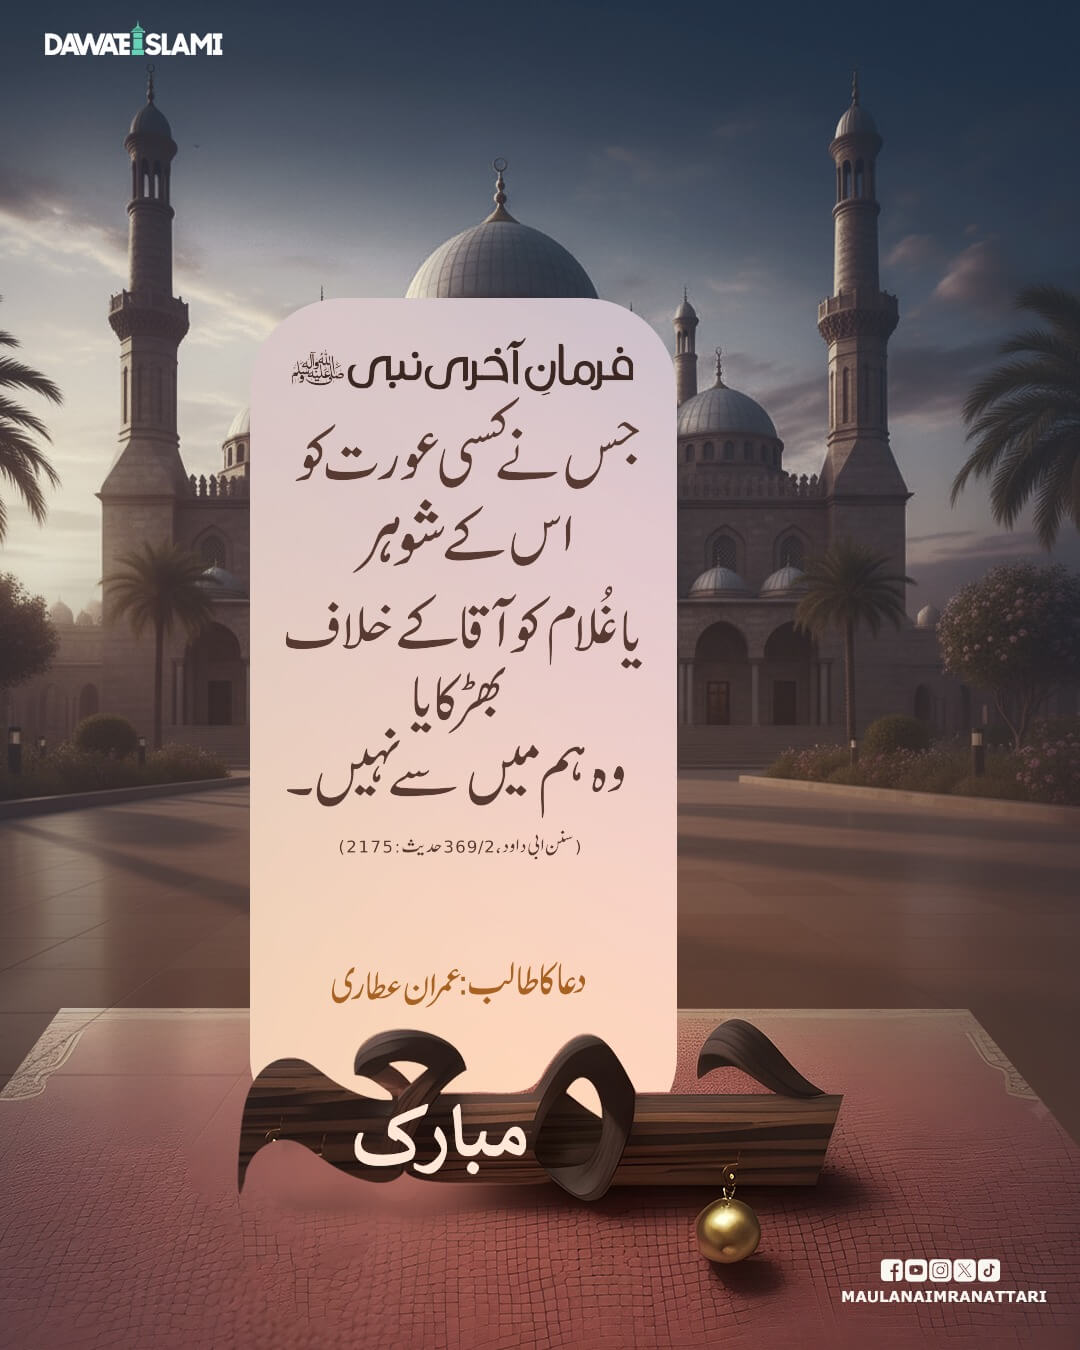 DAWATEISLAMI
فرمانِ آخری نبی ﷺ
جس نے کسی عورت کو
اس کے شوہر
یا غُلام کو آقا کے خلاف
بھڑکایا
وہ ہم میں سے نہیں۔
(سنن ابی داود، 369/2 حدیث: 2175)
دعا کا طالب: عمران عطاری
جمعہ
مبارک
MAULANAIMRANATTARI